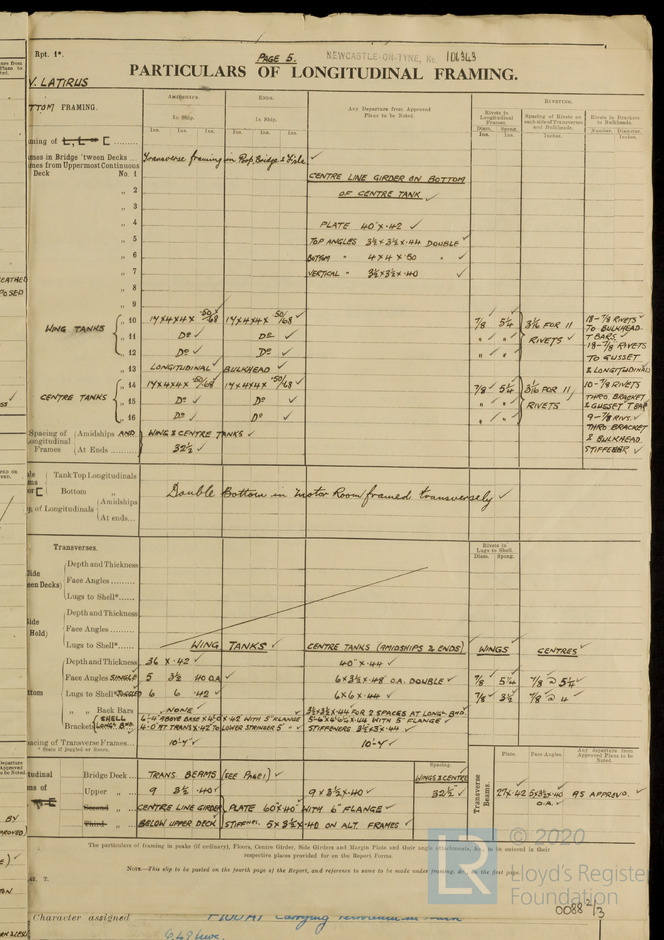 Rpt. 1*.
PAGE 5. NEWCASTLE-ON-TYNE, No. 106343
PARTICULARS OF LONGITUDINAL FRAMING.
V. LATIRUS
TTOM FRAMING.
AMIDSHIPS. ENDS. Any Departure from Approved Plans to be Noted. RIVETING.
In Ship. In Ship.
Rivets in Longitudinal Frames. Spacing of Rivets on each side of Transverses and Bulkheads. Rivets in Brackets to Bulkheads.
Ins. Ins. Ins. Ins. Ins. Ins. Diam. Ins. Spcng. Ins. Inches. Number. Diameter. Inches.
ming of
mes in Bridge 'tween Decks ... Transverse framing in Poop, Bridge & F'csle ✓
mes from Uppermost Continuous
Deck No. 1 CENTRE LINE GIRDER ON BOTTOM
" 2 OF CENTRE TANK ✓
" 3
" 4 PLATE 40" x .42 ✓
" 5 TOP ANGLES 3½ x 3½ x .44 DOUBLE ✓
" 6 BOTTOM " 4 x 4 x .50 " ✓
" 7 VERTICAL " 3½ x 3½ x .40 ✓
" 8
" 9
WING TANKS
" 10 17 x 4 x 4 x .50/.68 ✓ 17 x 4 x 4 x .50/.68 ✓ 7/8 5¼ 3 1/16 FOR 11 RIVETS ✓
" 11 Do ✓ Do ✓ " "
" 12 Do ✓ Do ✓ " "
18-7/8 RIVETS ✓
TO BULKHEAD
T BARS ✓
18-7/8 RIVETS
TO GUSSET
& LONGITUDINAL
" 13 LONGITUDINAL BULKHEAD ✓
CENTRE TANKS
" 14 17 x 4 x 4 x .50/.68 ✓ 17 x 4 x 4 x .50/.68 ✓ 7/8 5¼ 3 1/16 FOR 11 RIVETS
" 15 Do ✓ Do ✓ " "
" 16 Do ✓ Do ✓ " "
10-7/8 RIVETS
THRO BRACKET
& GUSSET T BAR
9-7/8 RIVS. ✓
THRO BRACKET
& BULKHEAD
STIFFENER ✓
Spacing of Longitudinal Frames
Amidships AND WING & CENTRE TANKS ✓
At Ends ... 32½ ✓
Tank Top Longitudinals
Bottom "
of Longitudinals Amidships
At ends...
Double Bottom in Motor Room framed transversely ✓
Transverses.
Rivets in Lugs to Shell.
Diam. Spcng.
Side
een Decks)
Depth and Thickness
Face Angles .........
Lugs to Shell* ......
Side
Hold)
Depth and Thickness
Face Angles .........
Lugs to Shell* ......
WING TANKS ✓ CENTRE TANKS (AMIDSHIPS & ENDS) ✓ WINGS ✓ CENTRES ✓
ttom
Depth and Thickness 36 x .42 ✓ 40" x .44 ✓
Face Angles SINGLE 5 3½ .40 O.A ✓ 6 x 3½ x .48 O.A. DOUBLE ✓ 7/8 5¼ 7/8 @ 5¼
Lugs to Shell* JOGGLED 6 6 .42 ✓ 6 x 6 x .44 ✓ 7/8 3½ 7/8 @ 4
" " Back Bars NONE ✓ 3½ x 3½ x .44 FOR 2 SPACES AT LONGL. BHD.
Brackets SHELL
LONGL BHD.
STIFFENERS 3½ x 3 x .44 ✓
acing of Transverse Frames... 10'-4" ✓ 10'-4" ✓
* State if joggled or liners.
Spacing.
Bridge Deck ... TRANS BEAMS (SEE PAGE 1) ✓ WINGS & CENTRES
Upper " ... 9 3½ .40 ✓ 9 x 3½ x .40 ✓ 32½" ✓
Second " ... CENTRE LINE GIRDER PLATE 60 x .40 WITH 6" FLANGE ✓
Third " ... BELOW UPPER DECK STIFFNRS. 5 x 3½ x .40 ON ALT. FRAMES ✓
Transverse Beams.
Plate. Face Angles. Any departure from Approved Plans to be Noted.
27 x .42 5 x 3½ x .40 O.A. AS APPROVD.
The particulars of framing in peaks (if ordinary), Floors, Centre Girder, Side Girders and Margin Plate and their angle attachments, &c., to be entered in their
respective places provided for on the Report Forms.
NOTE.—This slip to be pasted on the fourth page of the Report, and reference to same to be made under framing, &c., on the first page.
© 2020
LR
Lloyd's Register
Foundation
0088 2/3
Character assigned